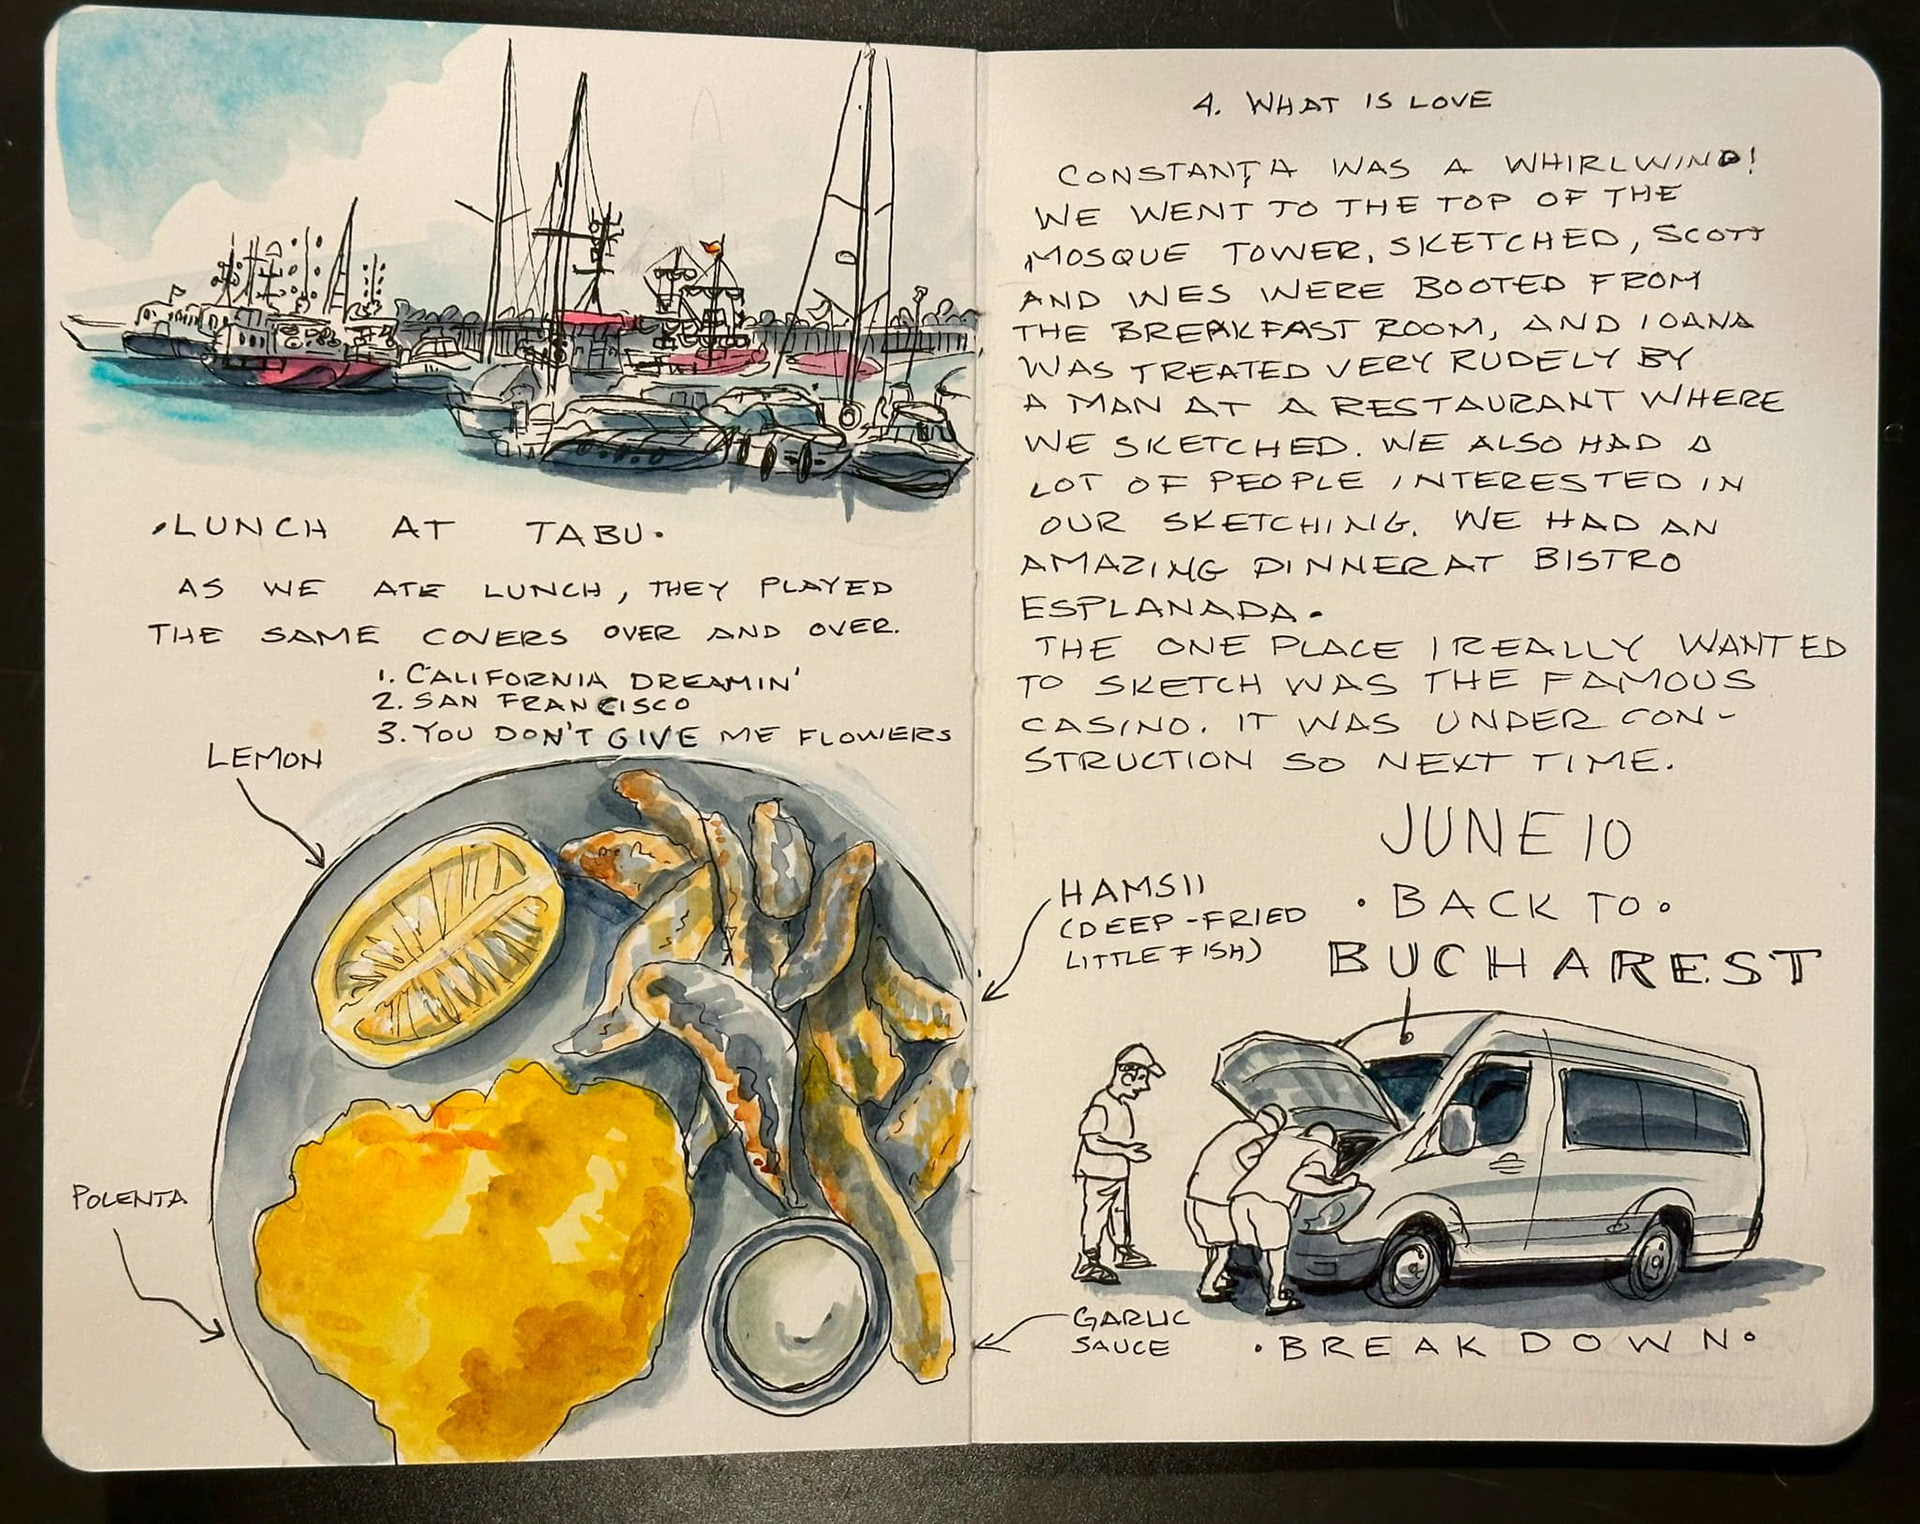 .LUNCH AT TABU.
AS WE ATE LUNCH, THEY PLAYED
THE SAME COVERS OVER AND OVER.
1. CALIFORNIA DREAMIN'
2. SAN FRANCISCO
3. YOU DON'T GIVE ME FLOWERS
LEMON
POLENTA
4. WHAT IS LOVE
CONSTANȚA WAS A WHIRLWIND!
WE WENT TO THE TOP OF THE
MOSQUE TOWER, SKETCHED, SCOTT
AND WES WERE BOOTED FROM
THE BREAKFAST ROOM, AND IOANA
WAS TREATED VERY RUDELY BY
A MAN AT A RESTAURANT WHERE
WE SKETCHED. WE ALSO HAD A
LOT OF PEOPLE INTERESTED IN
OUR SKETCHING. WE HAD AN
AMAZING DINNER AT BISTRO
ESPLANADA.
THE ONE PLACE I REALLY WANTED
TO SKETCH WAS THE FAMOUS
CASINO. IT WAS UNDER CON-
STRUCTION SO NEXT TIME.
HAMSII
(DEEP-FRIED
LITTLE FISH)
JUNE 10
• BACK TO •
BUCHAREST
GARLIC
SAUCE
• BREAKDOWN •